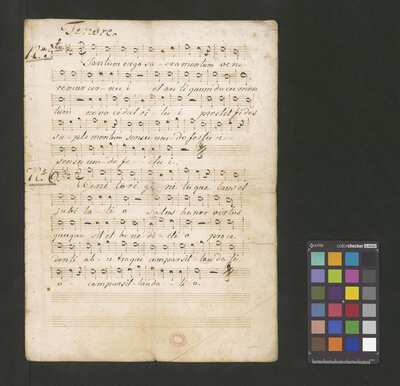 Tenore
Tantum ergo sa - cramentum ve ne
remur cer - nu i et an ti quum do cu men
tum novo cedat ri tu i prestet fides
su - ple mentum sensu um de fectu i -
sensu um de fe - ctu i.
No 6
Geni tori ge ni to que laus et
jubi la ti o salus honor virtus
quoque sit et be ne di - cti o proce
denti ab u troque compar sit lau da ti
o compar sit lauda - ti o.
colorchecker